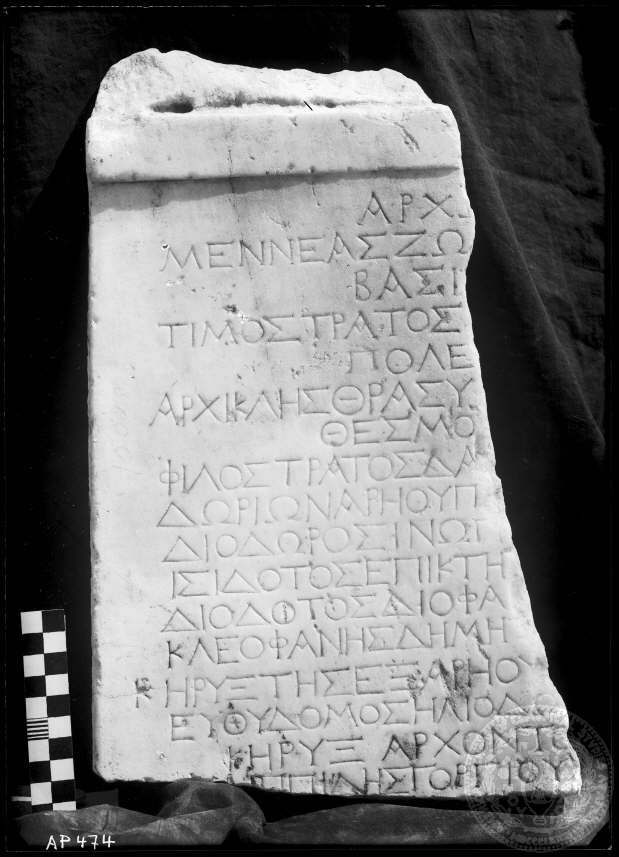 ΑΡΧ
ΜΕΝΝΕΑΣΖΩ
ΒΑΣΙ
ΤΙΜΟΣΤΡΑΤΟΣ
ΠΟΛΕ
ΑΡΧΙΚΛΗΣΘΡΑΣΥ
ΘΕΣΜΟ
ΦΙΛΟΣΤΡΑΤΟΣΔΑ
ΔΩΡΙΩΝΑΡΗΟΥΠ
ΔΙΟΔΩΡΟΣΙΝΩΠ
ΙΣΙΔΟΤΟΣΕΠΙΚΤΗ
ΔΙΟΔΟΤΟΣΔΙΟΦΑ
ΚΛΕΟΦΑΝΗΣΔΗΜΗ
ΚΗΡΥΞΤΗΣΕΞΑΡΗΟΥ
ΕΥΘΥΔΟΜΟΣΗΛΙΟΔ
ΚΗΡΥΞ ΑΡΧΟΝΤΟ
ΓΟΡΓΙΟΥ
AP 474